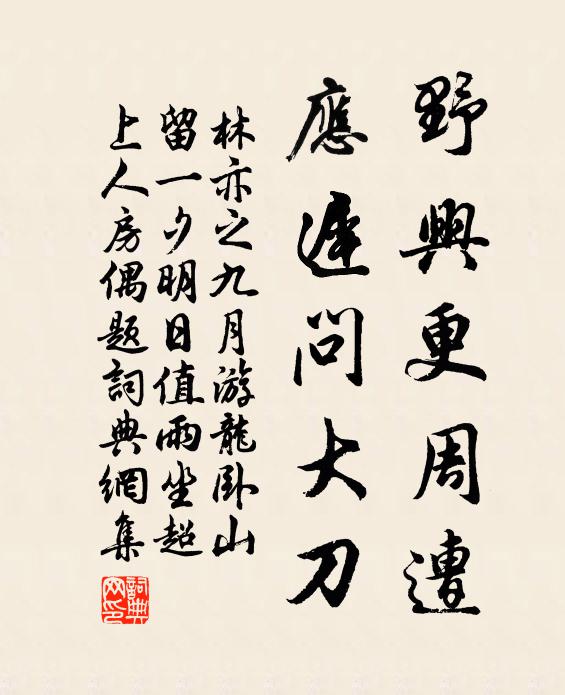 野興更周遭
應遲問大刀
林亦之九月游龍臥山
留一夕明日值雨坐超
上人房偶題詞典網集
詞典網印